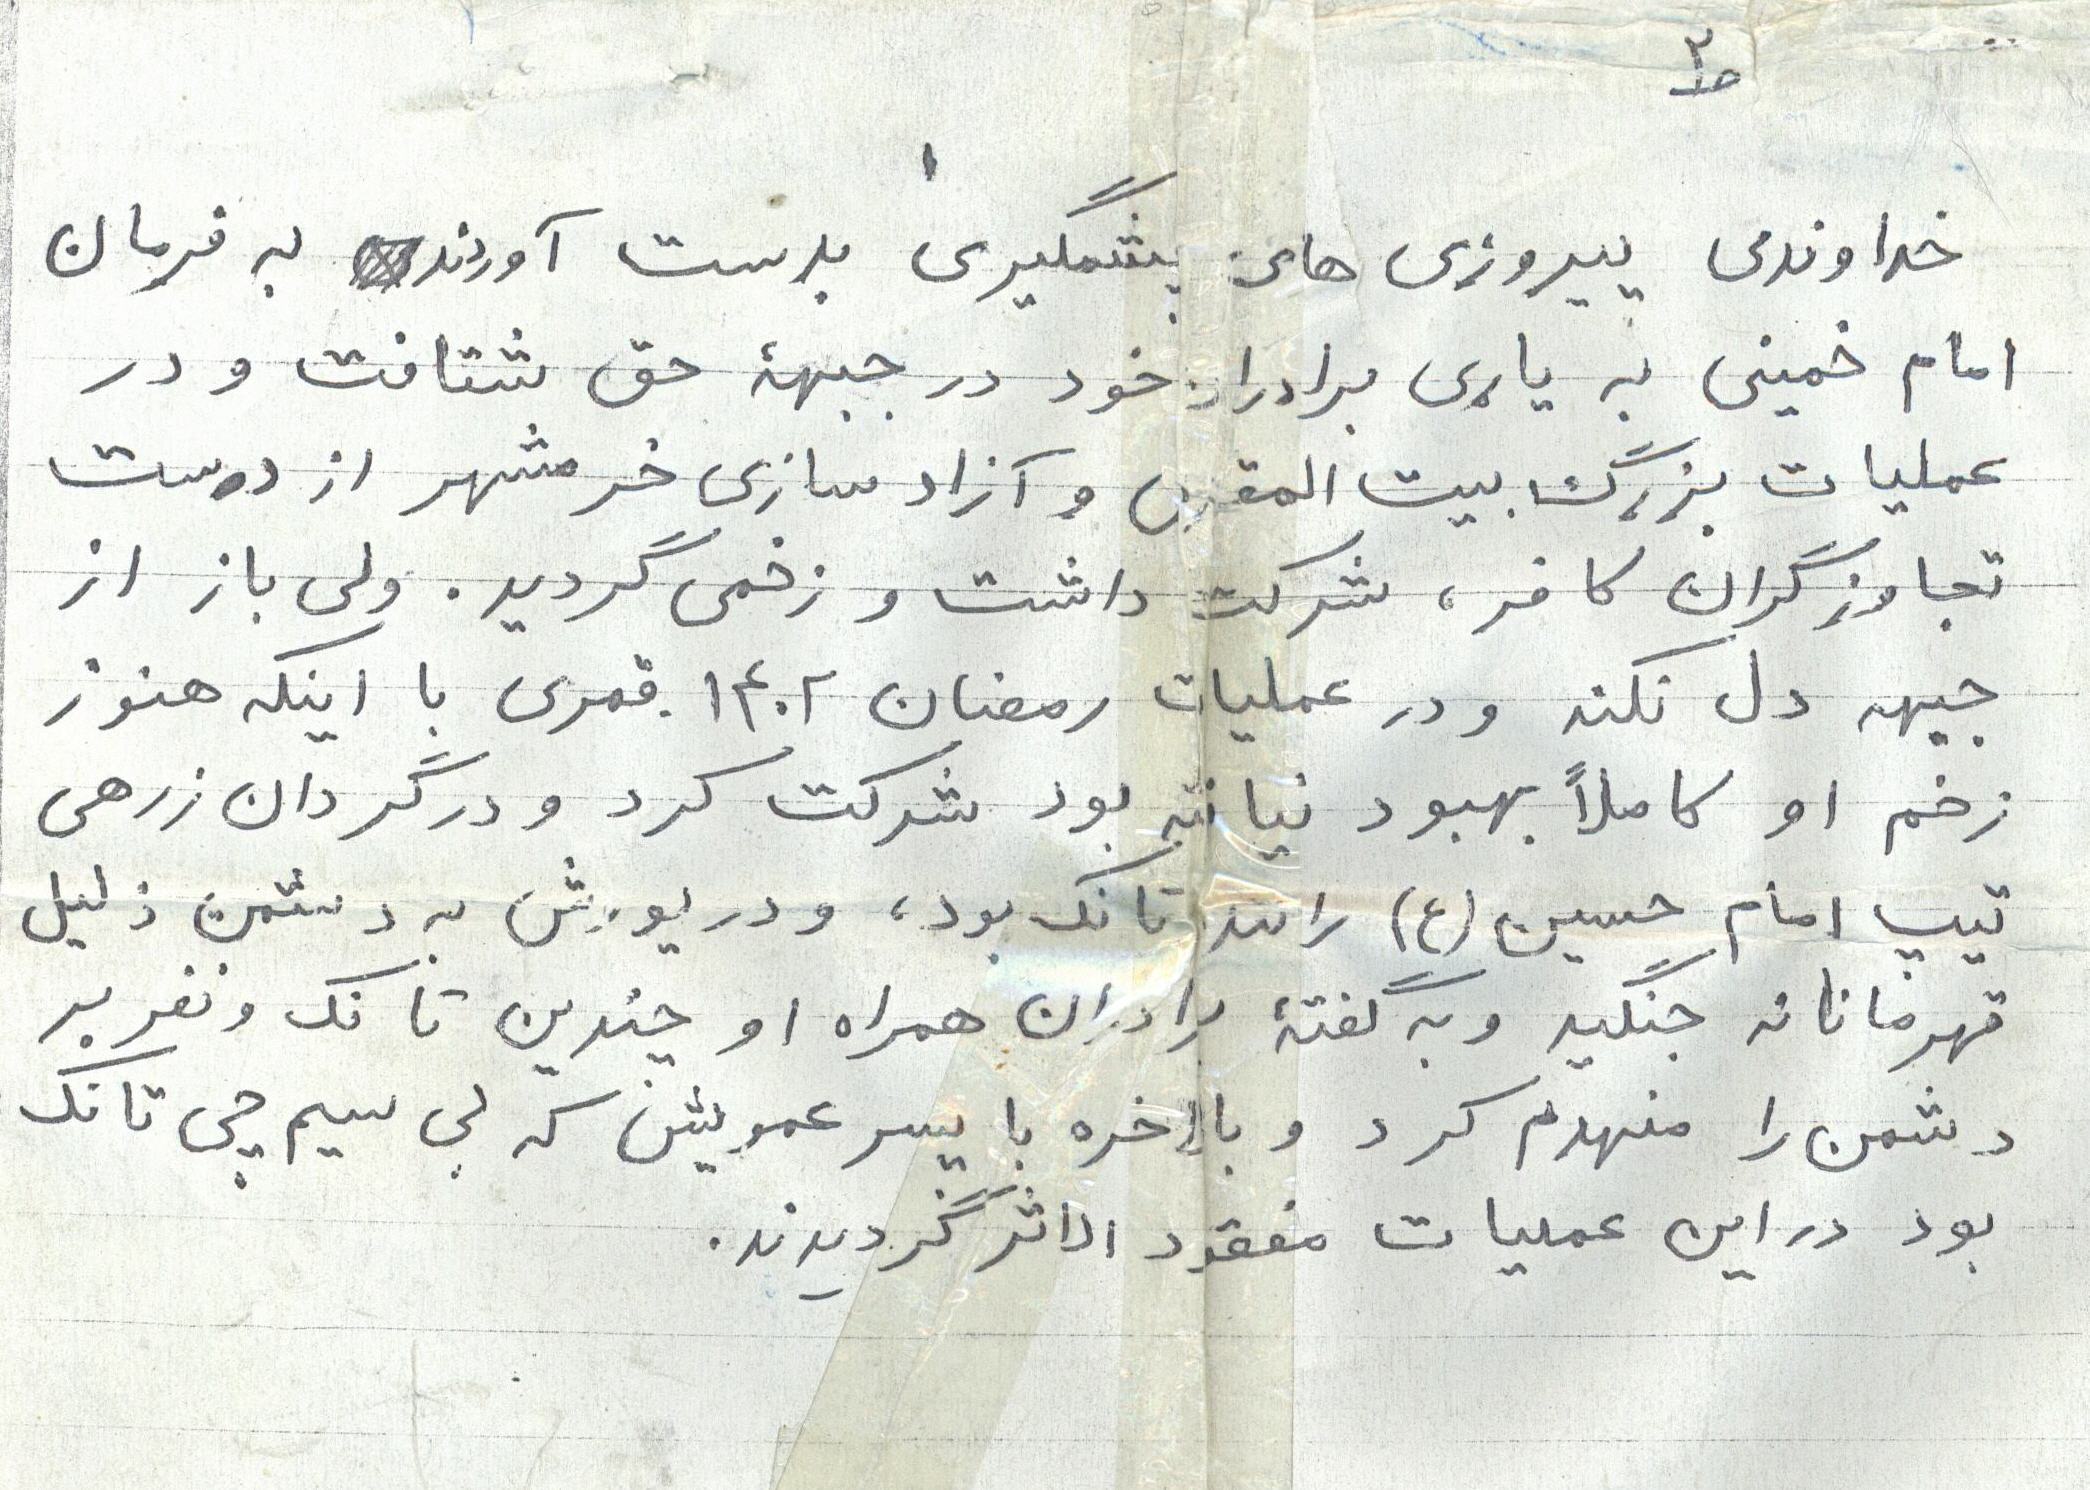 ص۳
۱
خداوندی پیروزی های پشمگیری بدست آوردند به فرمان
امام خمینی به یاری برادران خود در جبههٔ حق شتافت و در
عملیات بزرگ بیت المقدس و آزاد سازی خرمشهر از دست
تجاوزگران کافر، شرکت داشت و زخمی گردید. ولی باز از
جبهه دل نکند و در عملیات رمضان ۱۴۰۲ قمری با اینکه هنوز
زخم او کاملاً بهبود نیافته بود شرکت کرد و در گردان زرهی
تیپ امام حسین (ع) راننده تانک بود، و در یورش به دشمن ذلیل
قهرمانانه جنگید و به گفتهٔ برادران همراه او چندین تانک و نفربر
دشمن را منهدم کرد و بالاخره با پسر عمویش که بی سیم چی تانک
بود در این عملیات مفقود الاثر گردیدند.